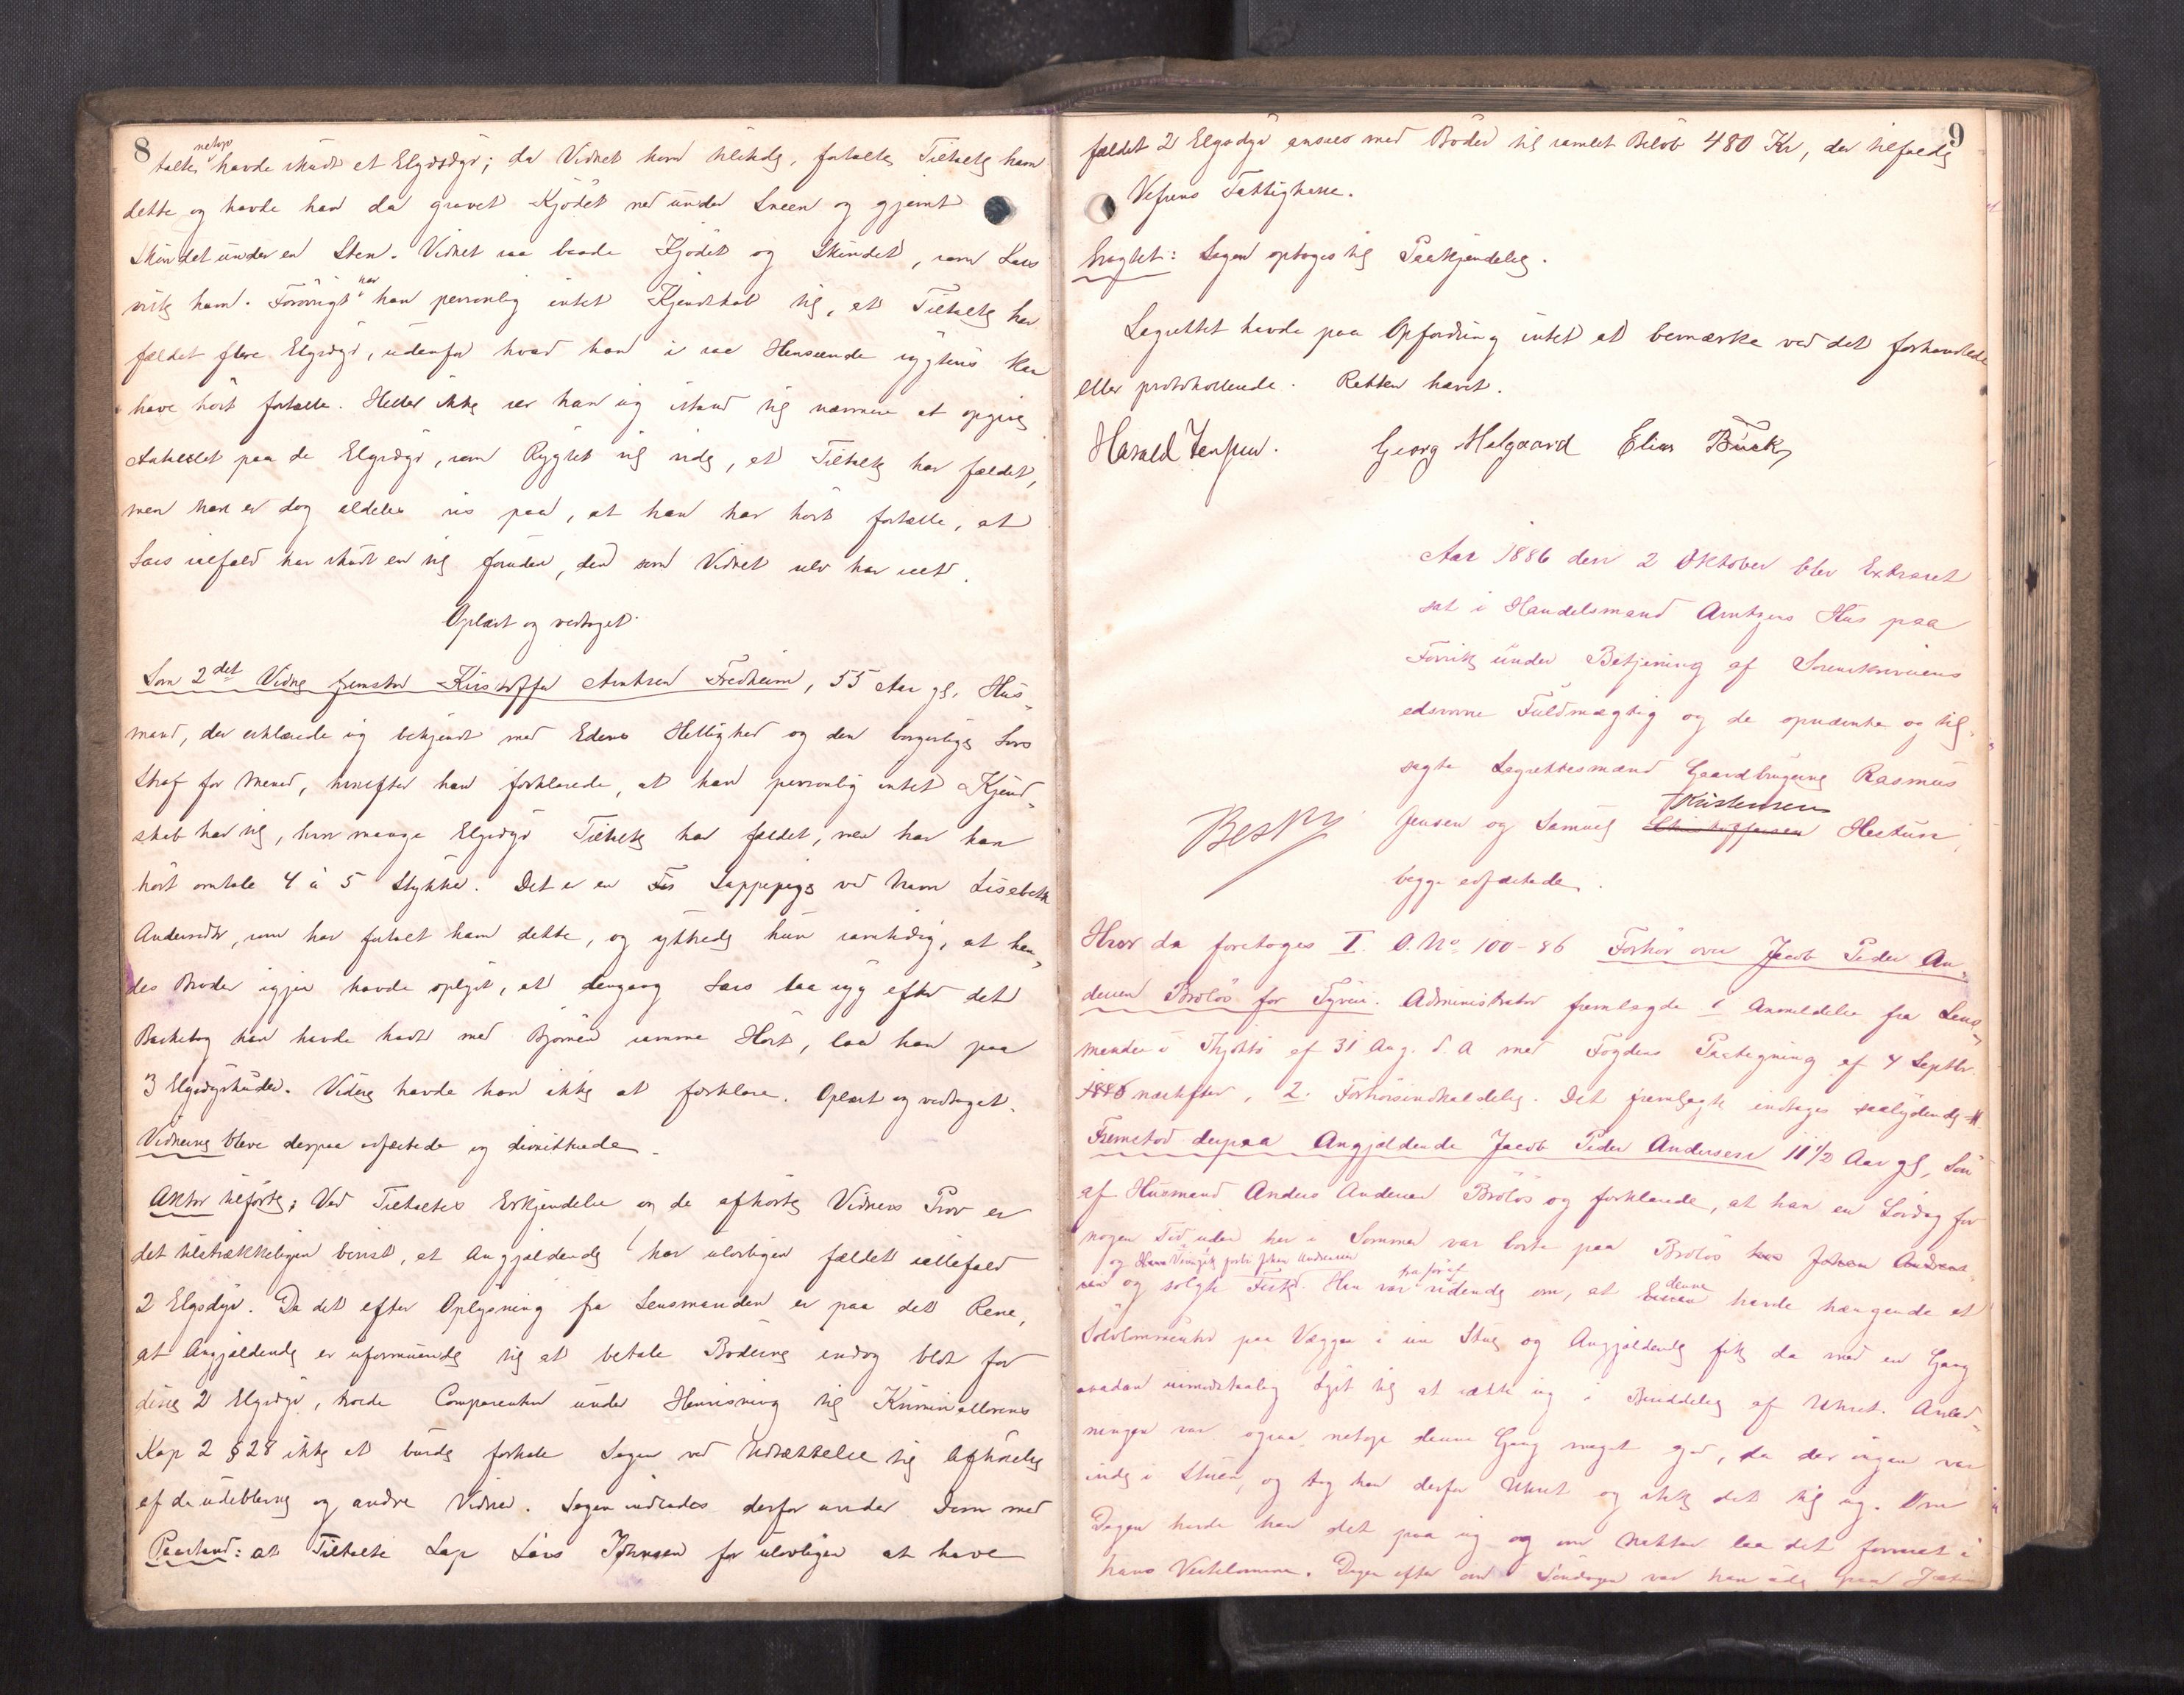 8
netop
talte havde skudt et Elgsdyr; da Vidnet kom tilstede, fortalte Tiltalte ham
dette og havde han da gravet Kjødet ned under Sneen og gjemt
Skindet under en Sten. Vidnet saa baade Kjødet og Skindet, som Lars
viste ham. Forøvrigt har han personlig intet Kjendskab til, at Tiltalte har
fældet flere Elgsdyr, udenfor hvad han i saa Henseende rygtevis kan
have hørt fortælle. Heller ikke ser han sig istand til nærmere at opgive
Antallet paa de Elgsdyr, som Rygtet vil vide, at Tiltalte har fældet,
men han er dog aldeles vis paa, at han har hørt fortælle, at
Lars ialfald har skudt en til foruden, den som Vidnet selv har seet.
Oplæst og vedtaget.
Som 2det Vidne fremstod Kristoffer Arntsen Fredheim, 55 Aar gl. Hus-
mand, der erklærede sig bekjendt med Edens Hellighed og den borgerlige Lovs
Straf for Mened, hvorefter han forklarede, at han personlig intet Kjend-
skab har til, hvor mange Elgsdyr Tiltalte har fældet, men har han
hørt omtale 4 à 5 Stykker. Det er en Lappepige ved Navn Lisebeth
Andersdtr, som har fortalt ham dette, og yttrede hun samtidig, at hen-
des Broder igjen havde oplyst, at dengang Lars laa syg efter det
Basketag han havde havt med Bjørnen samme Høst, laa han paa
3 Elgsdyrhuder. Videre havde han ikke at forklare. Oplæst og vedtaget.
Vidnerne bleve derpaa edfæstede og dimitterede.
Aktor tilførte: Ved Tiltaltes Erkjendelse og de afhørte Vidners Prov er
det tilstrækkeligen bevist, at Angjældende har ulovligen fældet iallefald
2 Elgsdyr. Da det efter Oplysning fra Lensmanden er paa det Rene,
at Angjældende er uformuende til at betale Bøderne endog blot for
disse 2 Elgsdyr, troede Comparenten under Henvisning til Kriminallovens
Kap 2 § 28 ikke at burde forhale Sagen ved Udsættelse til Afhørelse
af de udeblevne og andre Vidner. Sagen indlades derfor under Dom med
Paastand: at Tiltalte Lap Lars Johnsen for ulovligen at have
9
fældet 2 Elgsdyr ansees med Bøder til samlet Beløb 480 Kr, der tilfalde
Vefsens Fattigkasse.
Eragtet: Sagen optages til Paakjendelse.
Lagrettet havde paa Opfordring intet at bemærke ved det forhandlede
eller protokollerede. Retten hævet.
Harald Jensen. Georg Melgaard Elias Buck
Aar 1886 den 2 Oktober blev Extraret
sat i Handelsmand Arntzens Hus paa
Forvik under Betjening af Sorenskriverens
edsvorne Fuldmægtig og de opnævnte og til-
sagte Lagrettesmænd Gaardbrugerne Rasmus
Kristensen
Jensen og Samuel Christoffersen Hestun,
begge edfæstede.
Hvor da foretoges I. O. No 100-86 Forhør over Jacob Peder An-
dersen Brøløs for Tyveri. Administrator fremlagde 1 Anmeldelse fra Lens-
manden i Thjøttø af 31 Aug. d. A med Fogdens Paategning af 4 Septbr.
1886 næstefter, 2. Forhørsindkaldelse. Det fremlagte indtages saalydende #
Fremstod derpaa Angjældende Jacob Peder Andersen 11 1/2 Aar gl, Søn
af Husmand Anders Andersen Brøløs og forklarede, at han en Lørdag for
nogen Tid siden her i Sommer var borte paa Brøløs hos Johan Andreas-
sen og solgte Fisk. Han var fra før af vidende om, at denne havde hængende et
Sølvlommeuhr paa Væggen i sin Stue og Angjældende fik da med en Gang
saadan uimodstaalig Lyst til at sætte sig i Besiddelse af Uhret. Anled-
ningen var ogsaa netop denne Gang meget god, da der ingen var
inde i Stuen, og tog han derfor Uhret og stak det til sig. Om
Dagen havde han det paa sig og om Natten laa det gjemt i
hans Vestelomme. Dagen efter om Søndagen var han ude paa